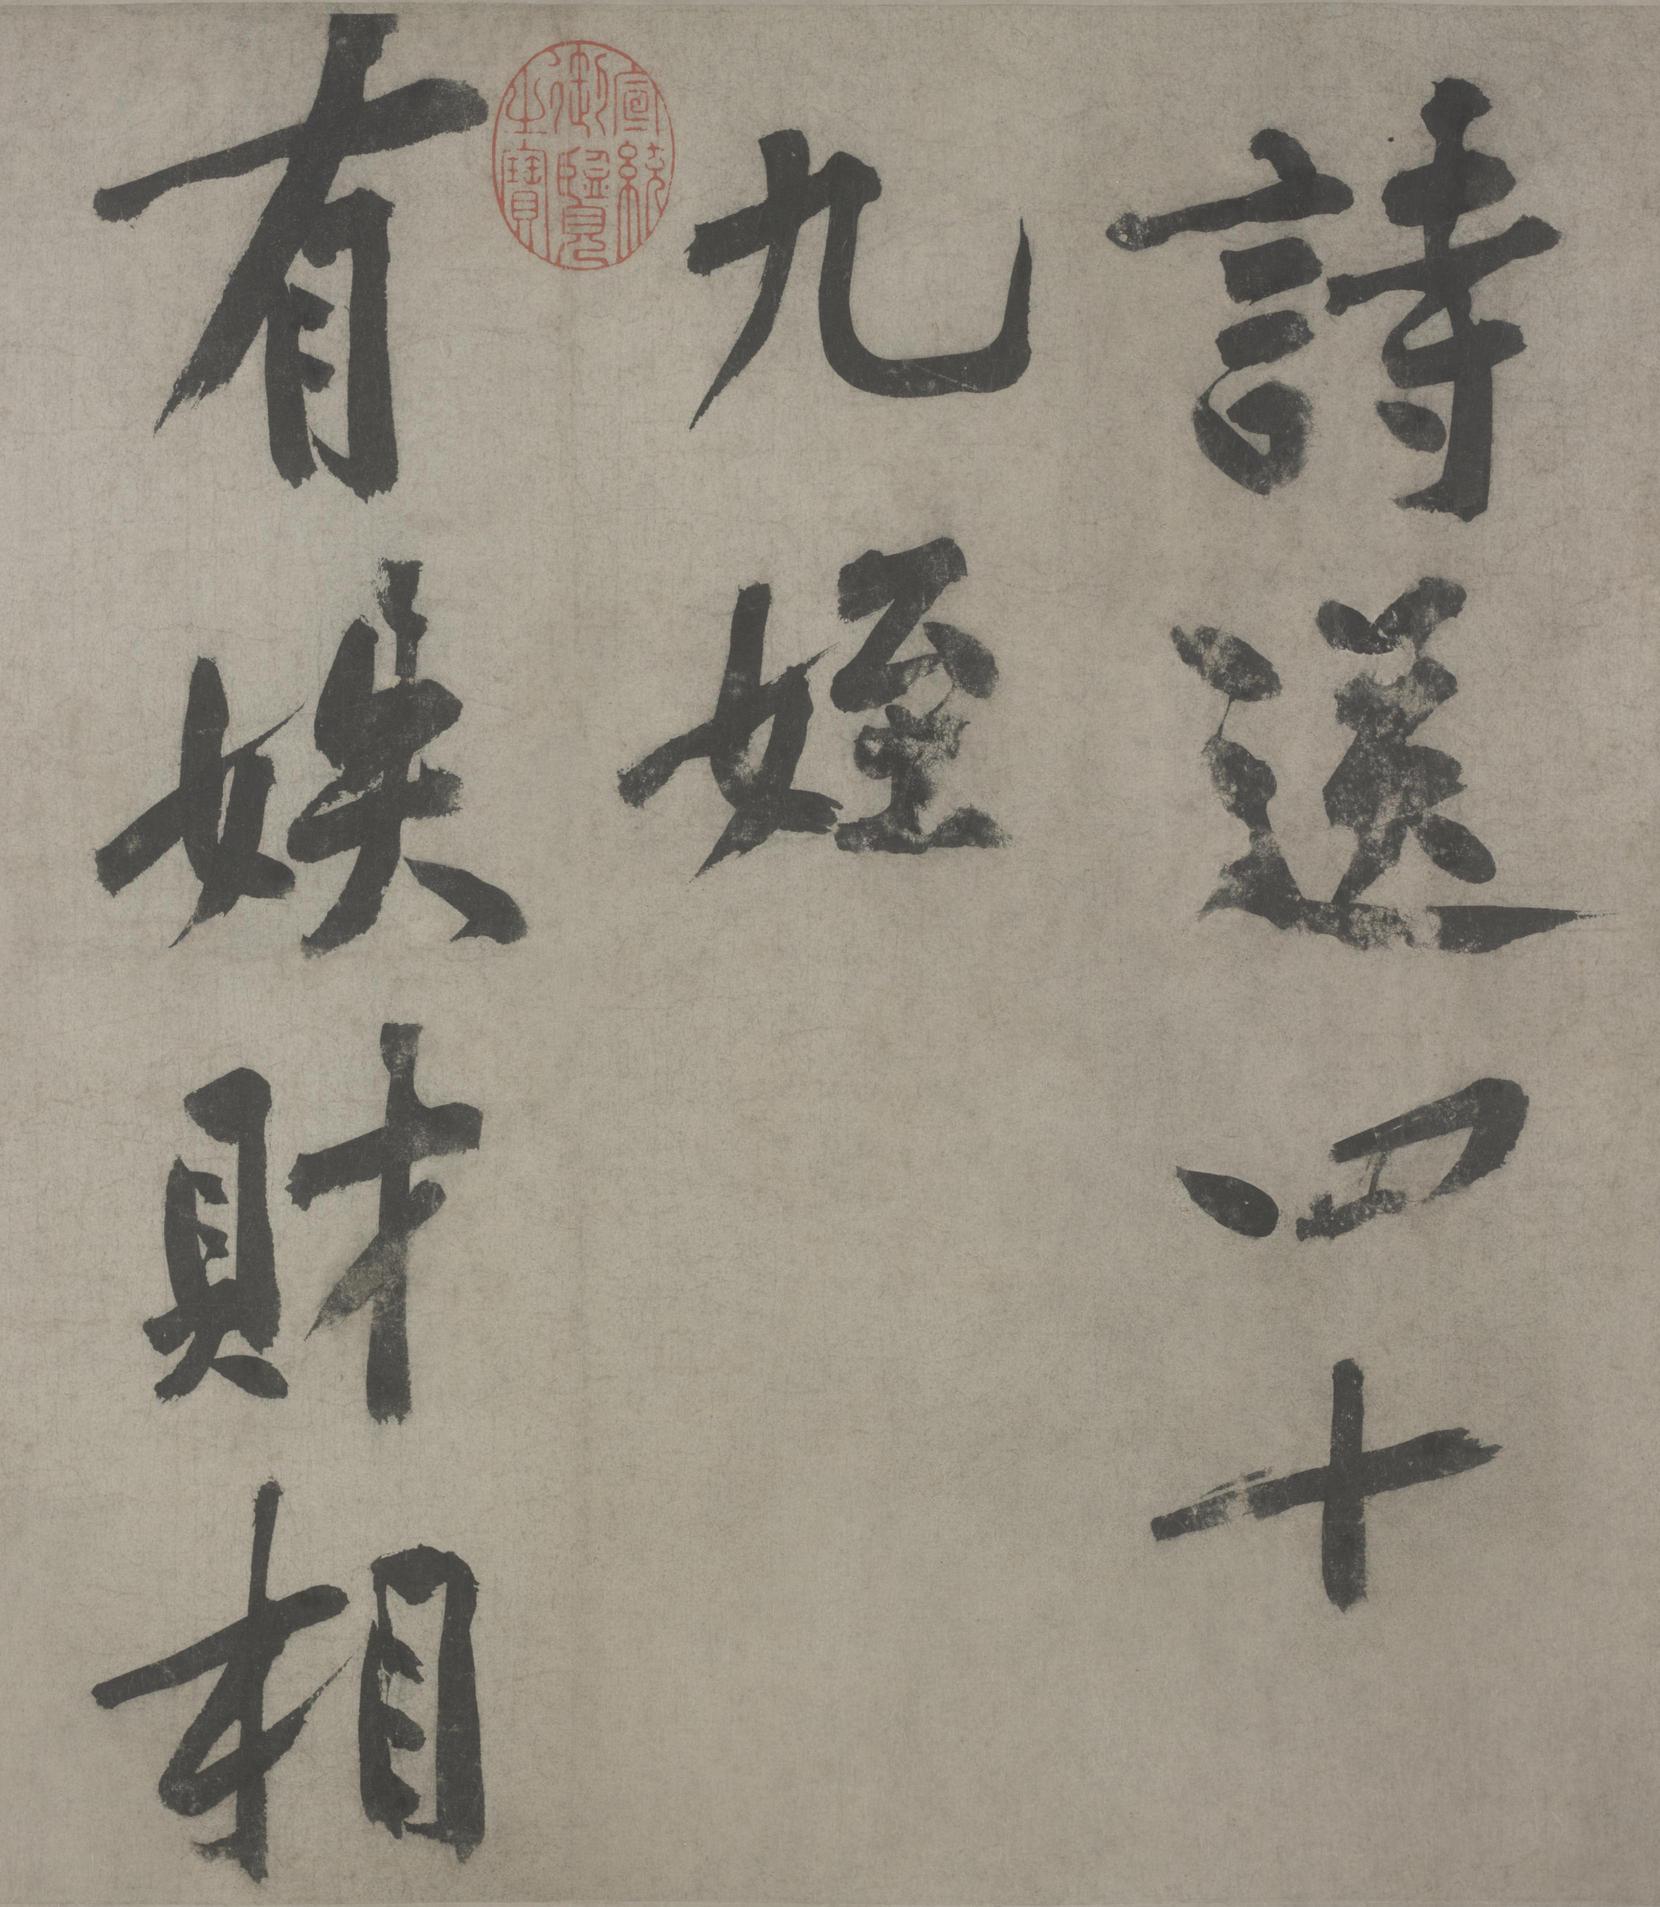 詩送四十
九姪
有財相
宣統御覽之寶